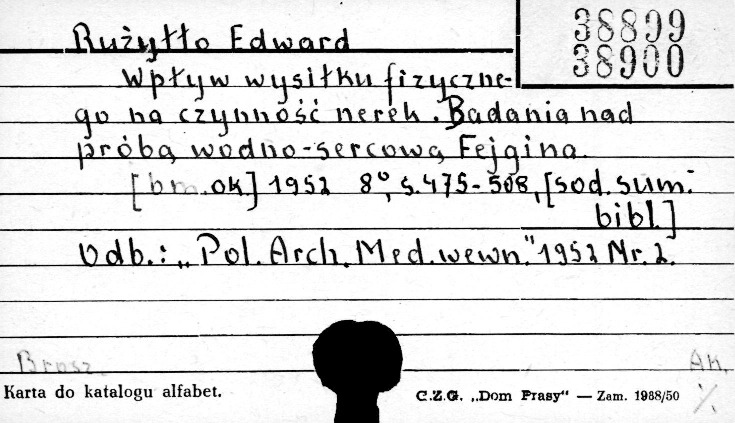 38899
38900
Rużyłło Edward
Wpływ wysiłku fizyczne-
go na czynność nerek. Badania nad
próbą wodno-sercową Fejgina.
[bm. ok.] 1952 8°, s. 475-508, [sod. sum.
bibl.]
Odb.: „Pol. Arch. Med. wewn." 1952 Nr. 2.
Brosz.
Ak.
Karta do katalogu alfabet.
C.Z.G. „Dom Prasy" — Zam. 1988/50